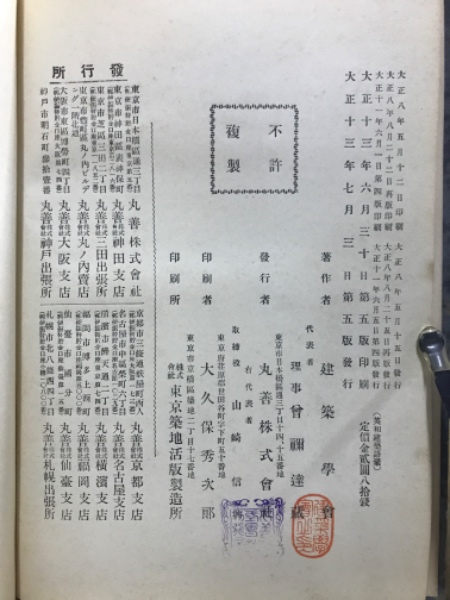 大正八年五月十二日印刷 大正八年五月十五日發行
大正八年八月二十二日再版印刷 大正八年八月二十五日再版發行
大正十一年六月二日第四版印刷 大正十一年六月五日第四版發行
大正十三年六月三十日第五版印刷
大正十三年七月三日第五版發行
定價金貳圓八拾錢
不許
複製
著作者 建築學會
代表者 理事 曾禰達藏
東京市日本橋區通三丁目十四十五番地
發行者 丸善株式會社
右代表者
取締役 山崎信興
東京府荏原郡世田谷町字下町五十番地
印刷者 大久保秀次郎
東京市京橋區築地二丁目十七番地
印刷所 株式會社 東京築地活版製造所
發行所
東京市日本橋區通三丁目 丸善株式會社
東京市神田區表神保町 丸善株式會社神田支店
東京市芝區三田二丁目 丸善株式會社三田出張所
東京市麴町區丸ノ内ビルヂング一階北通 丸善株式會社丸ノ内賣店
大阪市東區博勞町四丁目 丸善株式會社大阪支店
神戸市明石町參拾壹番 丸善株式會社神戸出張所
京都市三條通麩屋町西入 丸善株式會社京都支店
名古屋市中區榮町六丁目 丸善株式會社名古屋支店
横濱市辨天通二丁目 丸善株式會社横濱支店
福岡市博多上西町 丸善株式會社福岡支店
仙臺市國分町 丸善株式會社仙臺支店
札幌市北八條西四丁目 丸善株式會社札幌出張所